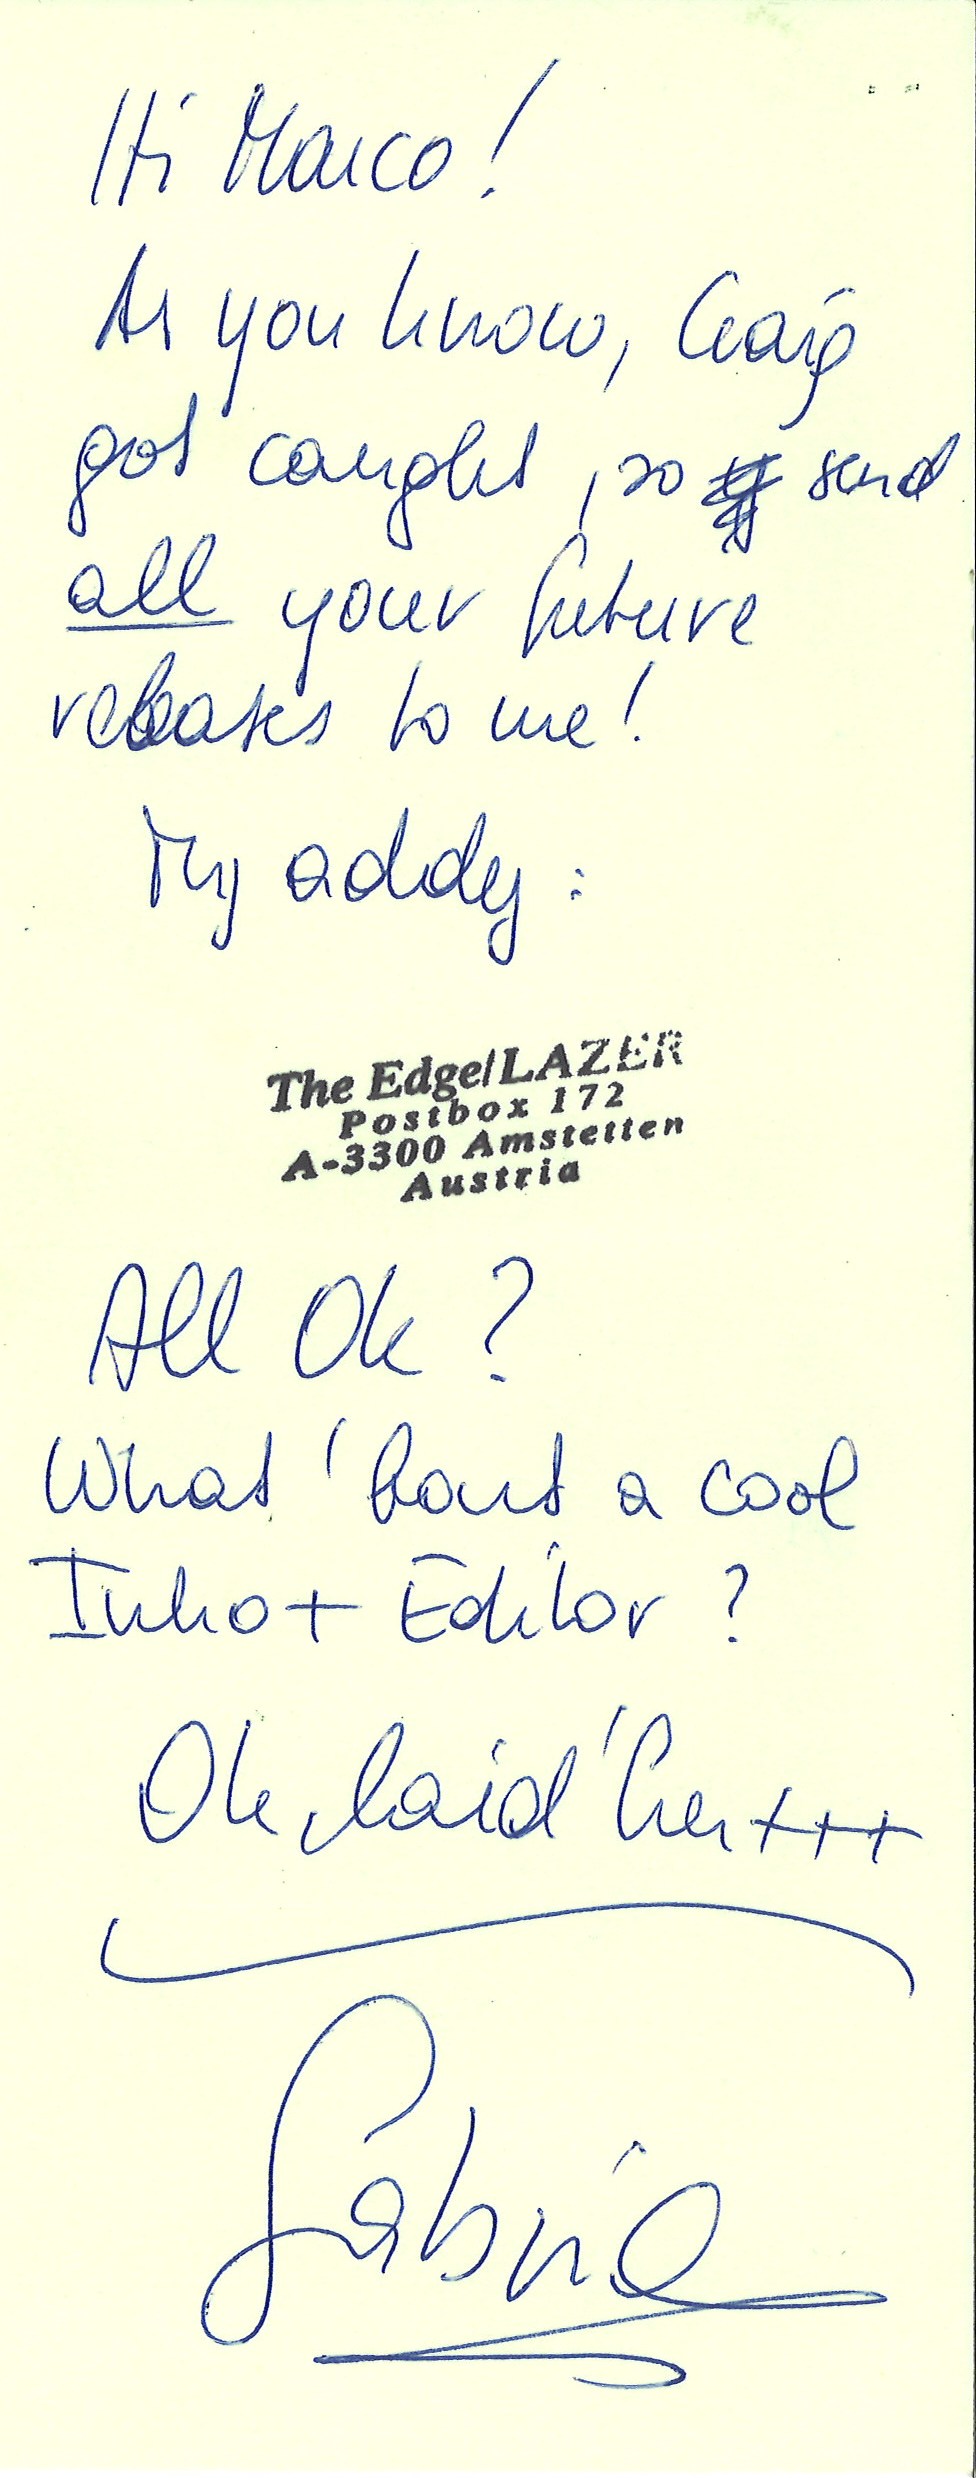 Hi Marco!
As you know, Craig
got caught, so send
all your future
releases to me!
My addy:
The Edge/LAZER
Postbox 172
A-3300 Amstetten
Austria
All Ok?
What 'bout a cool
Intro+ Editor?
Ok, laid 'her+++
Gabriel